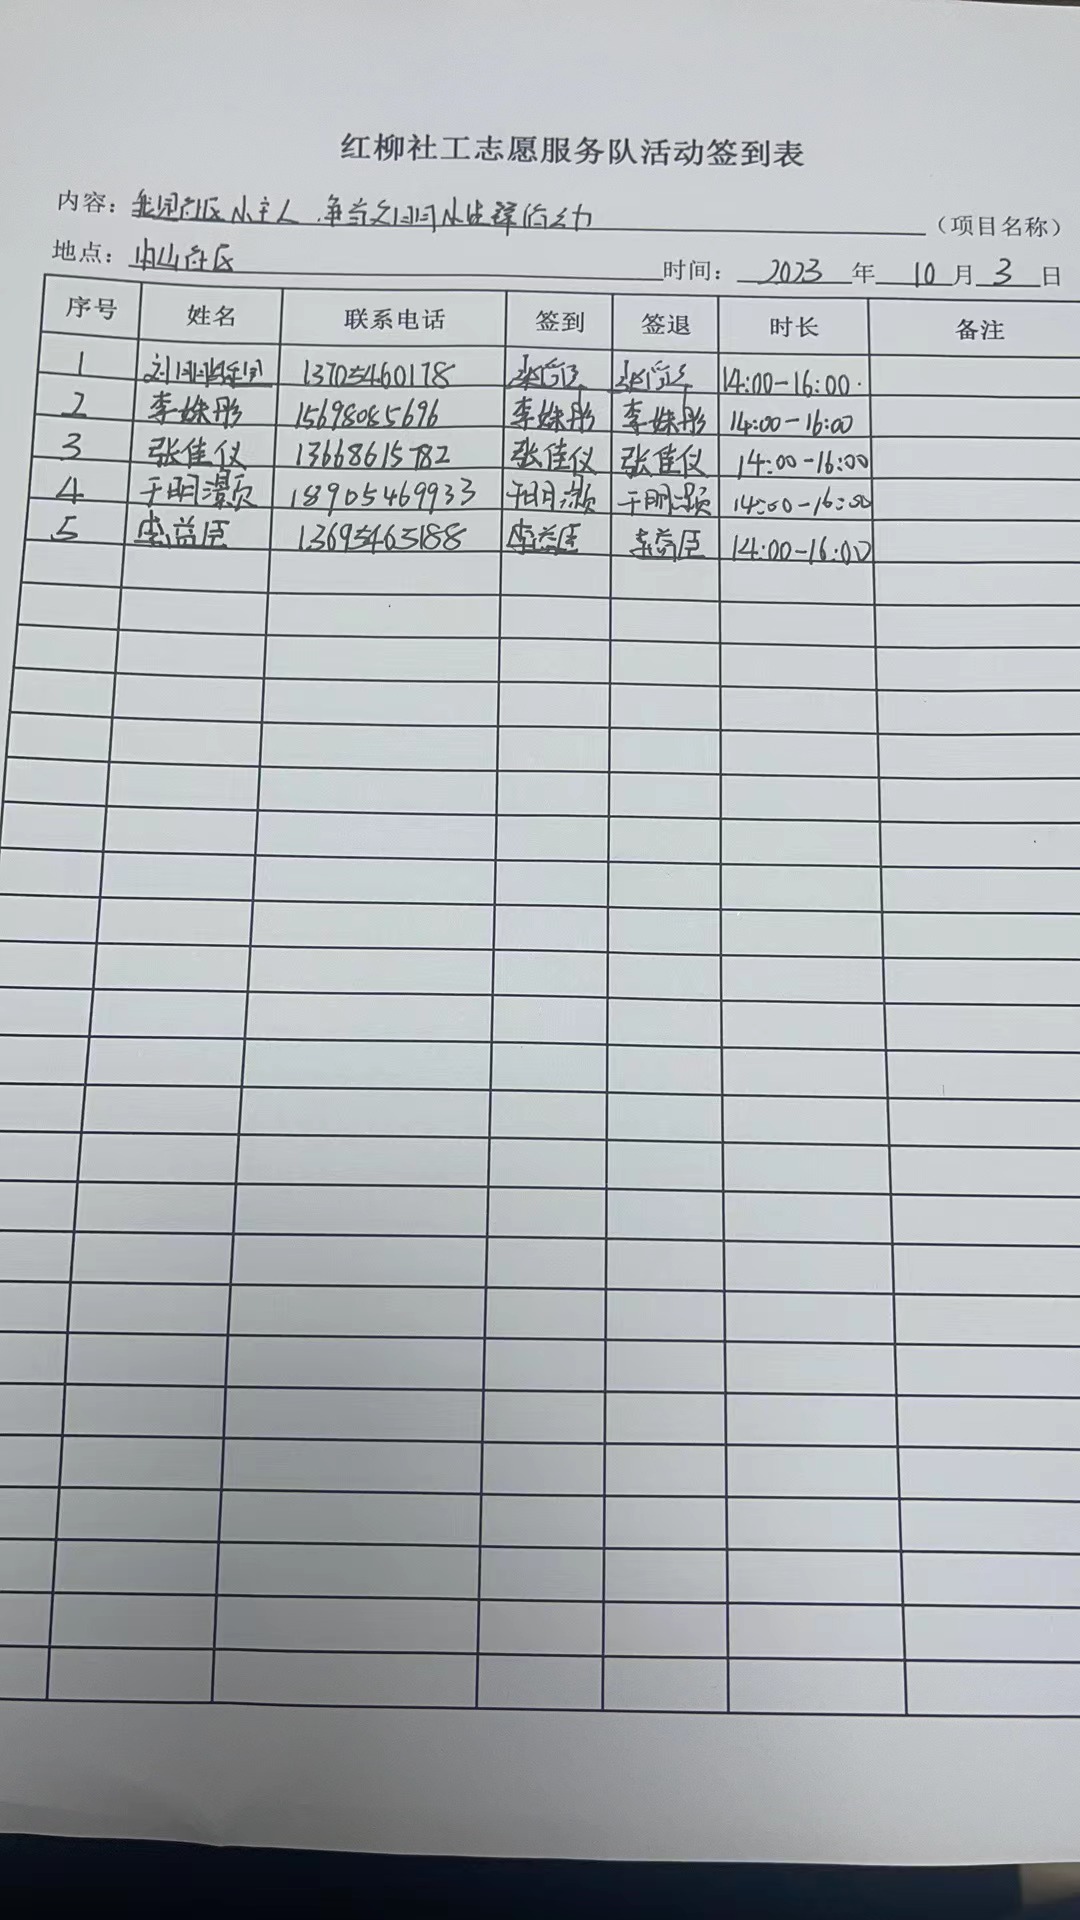 红柳社工志愿服务队活动签到表
内容：我是社区小主人 争当文明小 （项目名称）
地点：中山社区 时间：2023年10月3日
序号 姓名 联系电话 签到 签退 时长 备注
1 刘 13705460178 14:00-16:00
2 李姝彤 15698085696 李姝彤 李姝彤 14:00-16:00
3 张佳仪 13668615782 张佳仪 张佳仪 14:00-16:00
4 于明灏 18905469933 于明灏 于明灏 14:00-16:00
5 李益臣 13695463188 李益臣 李益臣 14:00-16:00